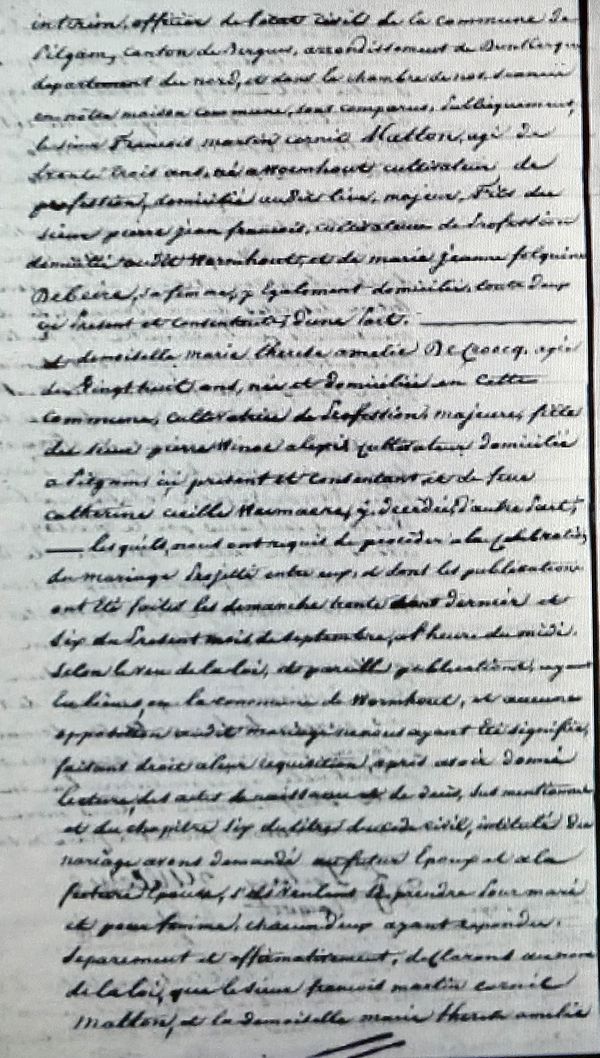 interim, officier de l'état civil de la commune de
Pitgam, canton de Bergues, arrondissement de Dunkerque
departement du nord, et dans la chambre de nos seances
en nôtre maison commune, sont comparus, Publiquement,
le sieur Francois martin cornil Matton, agé de
trente trois ans, né a Wormhout, cultivateur de
profession, domicilié audit lieu, majeur, Fils du
sieur pierre jean francois, cultivateur de Profession
domicilié audit Wormhout, et de marie jeanne folquine
Debeire, sa femme, y Egalement domiciliée, toute deux
ici Present et consentant, d'une Part.
et demoiselle marie therese amelie Decroocq, agée
de Vingt huit ans, née et domiciliée en Cette
Commune, cultivatrice de Profession, majeure, fille
du sieur pierre Winoc alexis cultivateur domicilié
a Pitgam ici present et Consentant, et de feue
catherine cecille, y decedée, d'autre Part,
lesquels, nous ont requis de proceder a la Celebration
du mariage Projetté entre eux, et dont les publications
ont Eté faites les dimanche trente dernier et
six du Present mois de septembre, a l'heure de midi,
selon le veu de la loi, de pareille publications, ayant
eu lieues, en la commune de Wormhout, et aucune
opposition audit mariage ne nous ayant Eté signifiée,
faisant droit a leur requisition, après avoir donné
lecture, des actes de naissance et de decès, sus mentionnés
et du chapitre six du titre du code civil, intitulé du
mariage avons demandé au futur Epoux et a la
future Epouse, s'ils Veulent se prendre Pour mari
et pour femme, chacun d'eux ayant repondu,
separement et affirmativement, declarons au nom
de la loi, que le sieur francois martin cornil
Matton, et la demoiselle marie therese amelie